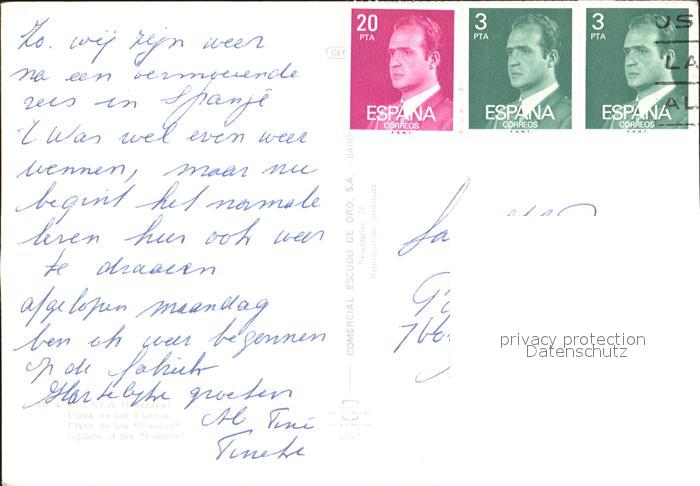 Zo. wij zijn weer
na een vermoeiende
reis in Spanje
't Was wel even weer
wennen, maar nu
begint het normale
leven hier ook weer
te draaien
afgelopen maandag
ben ik weer begonnen
op de fabriek
Hartelijke groeten
Tineke
Plaza de los Fueros
Place de los "Fueros"
Square of the "Fueros"
COMERCIAL ESCUDO DE ORO, S.A.
Reproducción prohibida
20 PTA
ESPAÑA
CORREOS
F.N.M.T.
3 PTA
ESPAÑA
CORREOS
F.N.M.T.
3 PTA
ESPAÑA
CORREOS
F.N.M.T.
US
LA
AL
privacy protection
Datenschutz